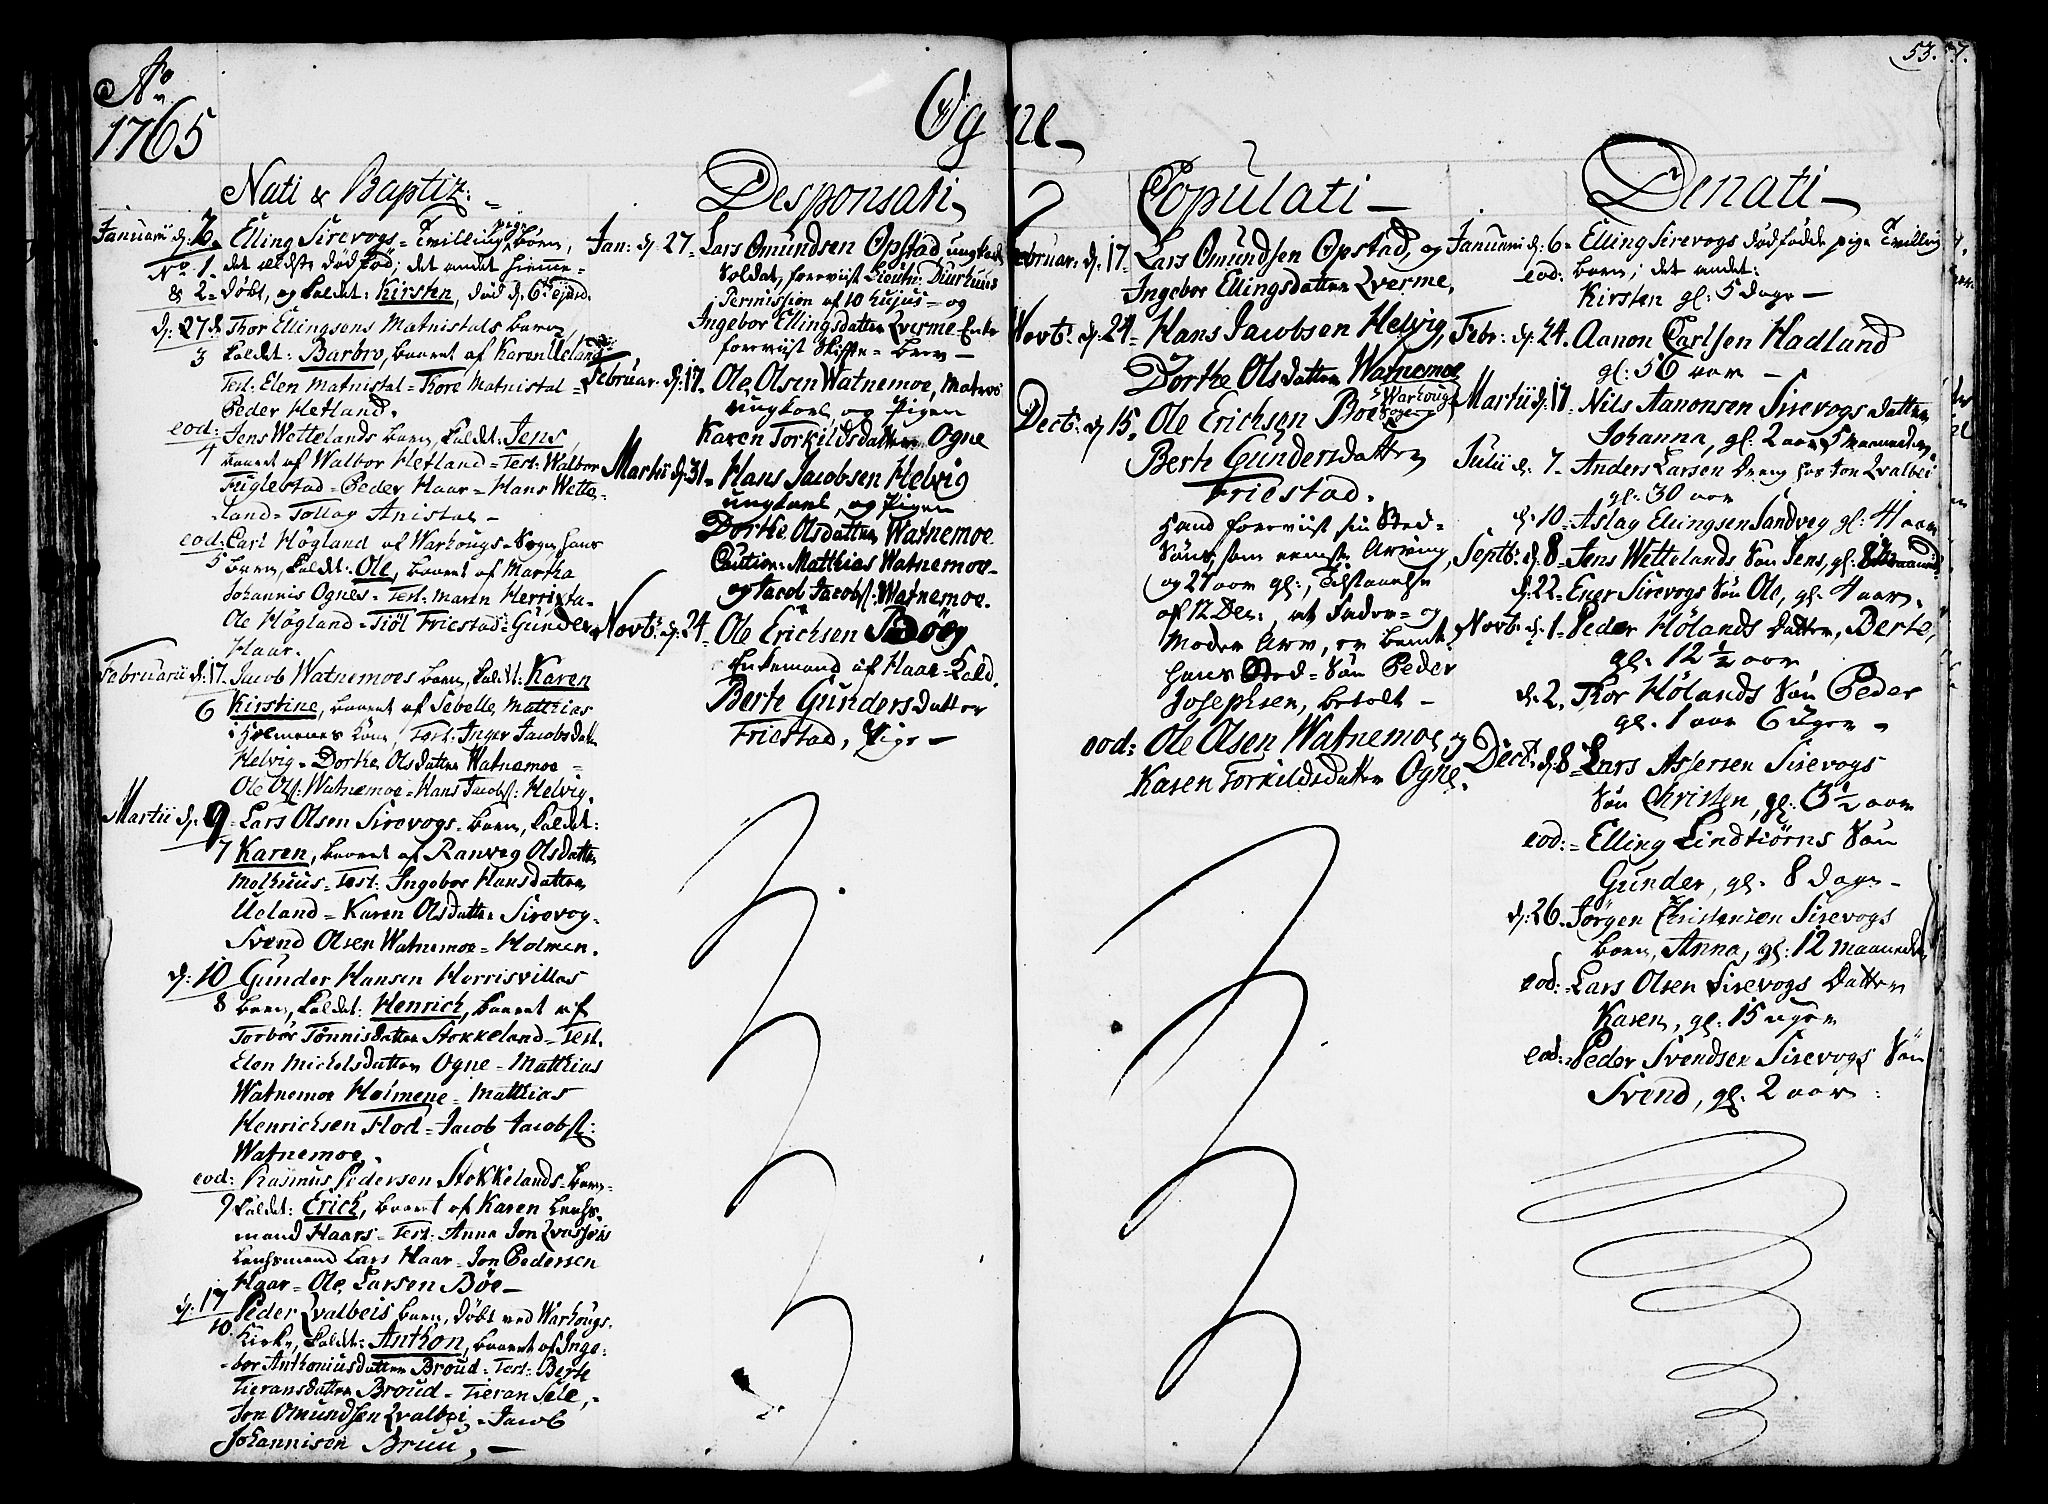 53.
Ao
1765
Ogne
Nati & Baptiz:
Januarii d: 2. Elling Sirevogs Tvilling pige Børn,
No 1. det eldste død fød; det andet hieme=
& 2 døbt, og kaldet: Kirsten, død d. 6 Ejusd.
d: 27 Thor Ellingsens Matnistals barn
3 kaldet: Barbro, baaret af Karen Ueland
Test: Elen Matnistal = Thore Matnistal =
Peder Hetland.
eod: Jens Wettelands barn, kaldet: Jens,
4 baaret af Walbor Hetland = Test: Walbor
Fuglestad = Peder Haar = Hans Wette=
land = Tollag Anistal
eod: Carl Högland af Warhougs Sogn hans
5 barn, kaldet: Ole, baaret af Martha
Johannis Ognes = Test: Maren Herrixta=
Ole Högland = Tiöl Friestad = Gunder
Haar.
Februarii d: 17. Jacob Watnemoes barn, kaldt: Karen
6 Kirstine, baaret af Sebelle Matthias
i Holmenes Kone, Test: Inger Jacobsdatt
Helvig = Dorthe Olsdatter Watnemoe =
Ole Ols: Watnemoe = Hans Jacobs: Helvig.
Martii d: 9 Lars Olsen Sirevogs barn, kaldet:
7 Karen, baaret af Ranveg Olsdatter
Molhuus = Test: Ingebor Hansdatter
Ueland = Karen Olsdatter Sirevog =
Svend Olsen Watnemoe = Holmen.
d: 10 Gunder Hansen Herrisvilles
8 barn, kaldet: Henrich, baaret af
Torbor Tönnisdatter Stokkeland = Test.
Elen Michelsdatter Ogne = Matthias
Watnemoe Holmene = Matthias
Henrichsen Flod = Jacob Jacobs:
Watnemoe.
eod: Rasmus Pedersen Stokkelands barn
9 kaldet: Erich, baaret af Karen Lens=
mand Haars = Test: Anna Jon Qvassheis
Lensmand Lars Haar = Jon Pedersen
Haar = Ole Larsen Böe
d: 17 Peder Qvalbeis barn, døbt ved Warhougs
10. Kirke, kaldet: Anthon, baaret af Inge=
bor Anthoniusdatter Broud = Test: Berte
Tieransdatter Broud = Tieran Sele,
Jon Omundsen Qvalbei = Jacob
Johannisen Bruu,
Desponsati
Jan: d: 27. Lars Omundsen Opstad ungkarl
Soldat, foreviist Lieutn: Diurhuus
Permission af 10 hujus = og
Ingebor Ellingsdatter Qverme Enke
foreviist Skifte = brev
Februar: d: 17. Ole Olsen Watnemoe, Matros
ungkarl og Pigen
Karen Torkildsdatter Ogne
Martii d: 31. Hans Jacobsen Helvig
ungkarl, og Pigen
Dorthe Olsdatter Watnemoe
Caution: Matthias Watnemoe
og Jacob Jacobs: Watnemoe.
Novbr: d: 24. Ole Erichsen
Enkemand af Haar = kald.
Berte Gundersdatter
Friestad, Pige
Copulati
Februar: d: 17. Lars Omundsen Opstad, og
Ingebor Ellingsdatter Qverme.
Novbr: d: 24. Hans Jacobsen Helvig,
Dorthe Olsdatter Watnemoe
Decbr: d: 15. Ole Erichsen Böe Warhougs Sogn og
Berte Gundersdatter
Friestad.
Hand foreviist sin Sted=
Søns, som eeneste Arving
og 27 aar gl:, Tilstaaelse
af 12 Dec:, at Fader= og
Moder Arv, er bemt.
hans Sted = Søn Peder
Josephsen, betalt
eod: Ole Olsen Watnemoe og
Karen Torkildsdatter Ogne.
Denati
Januarii d: 6. Elling Sirevogs dødfødde pige Tvilling
eod: barn; det andet:
Kirsten gl: 5 dage
Febr: d: 24. Aanon Carlsen Hadland
gl: 56 aar
Martii d: 17. Nils Aanonsen Sirevogs datter
Johanna, gl: 2 aar 5 maaneder.
Julii d: 7. Anders Larsen Dreng hos Jon Qvalbei
gl: 30 aar
d: 10. Aslag Ellingsen Sandveg gl: 41 aar
Septbr: d: 8. Jens Wettelands Søn Jens, gl:
d: 22. Ener Sirevogs Søn Ole, gl: 4 aar.
Novbr: d: 1. Peder Hölands Datter, Berte,
gl: 12 1/2 aar
d: 2. Thor Hölands Søn Peder
gl: 1 aar 6 Uger
Decbr: d: 8. Lars Assersen Sirevogs
Søn Christen, gl: 3 1/2 aar
eod: Elling Lindtiörns Søn
Gunder, gl: 8 dage
d: 26. Jörgen Christensen Sirevogs
barn, Anna, gl: 12 maaneder,
eod: Lars Olsen Sirevogs Datter
Karen, gl: 15 uger
eod: Peder Svendsen Sirevogs Søn
Svend, gl: 2 aar